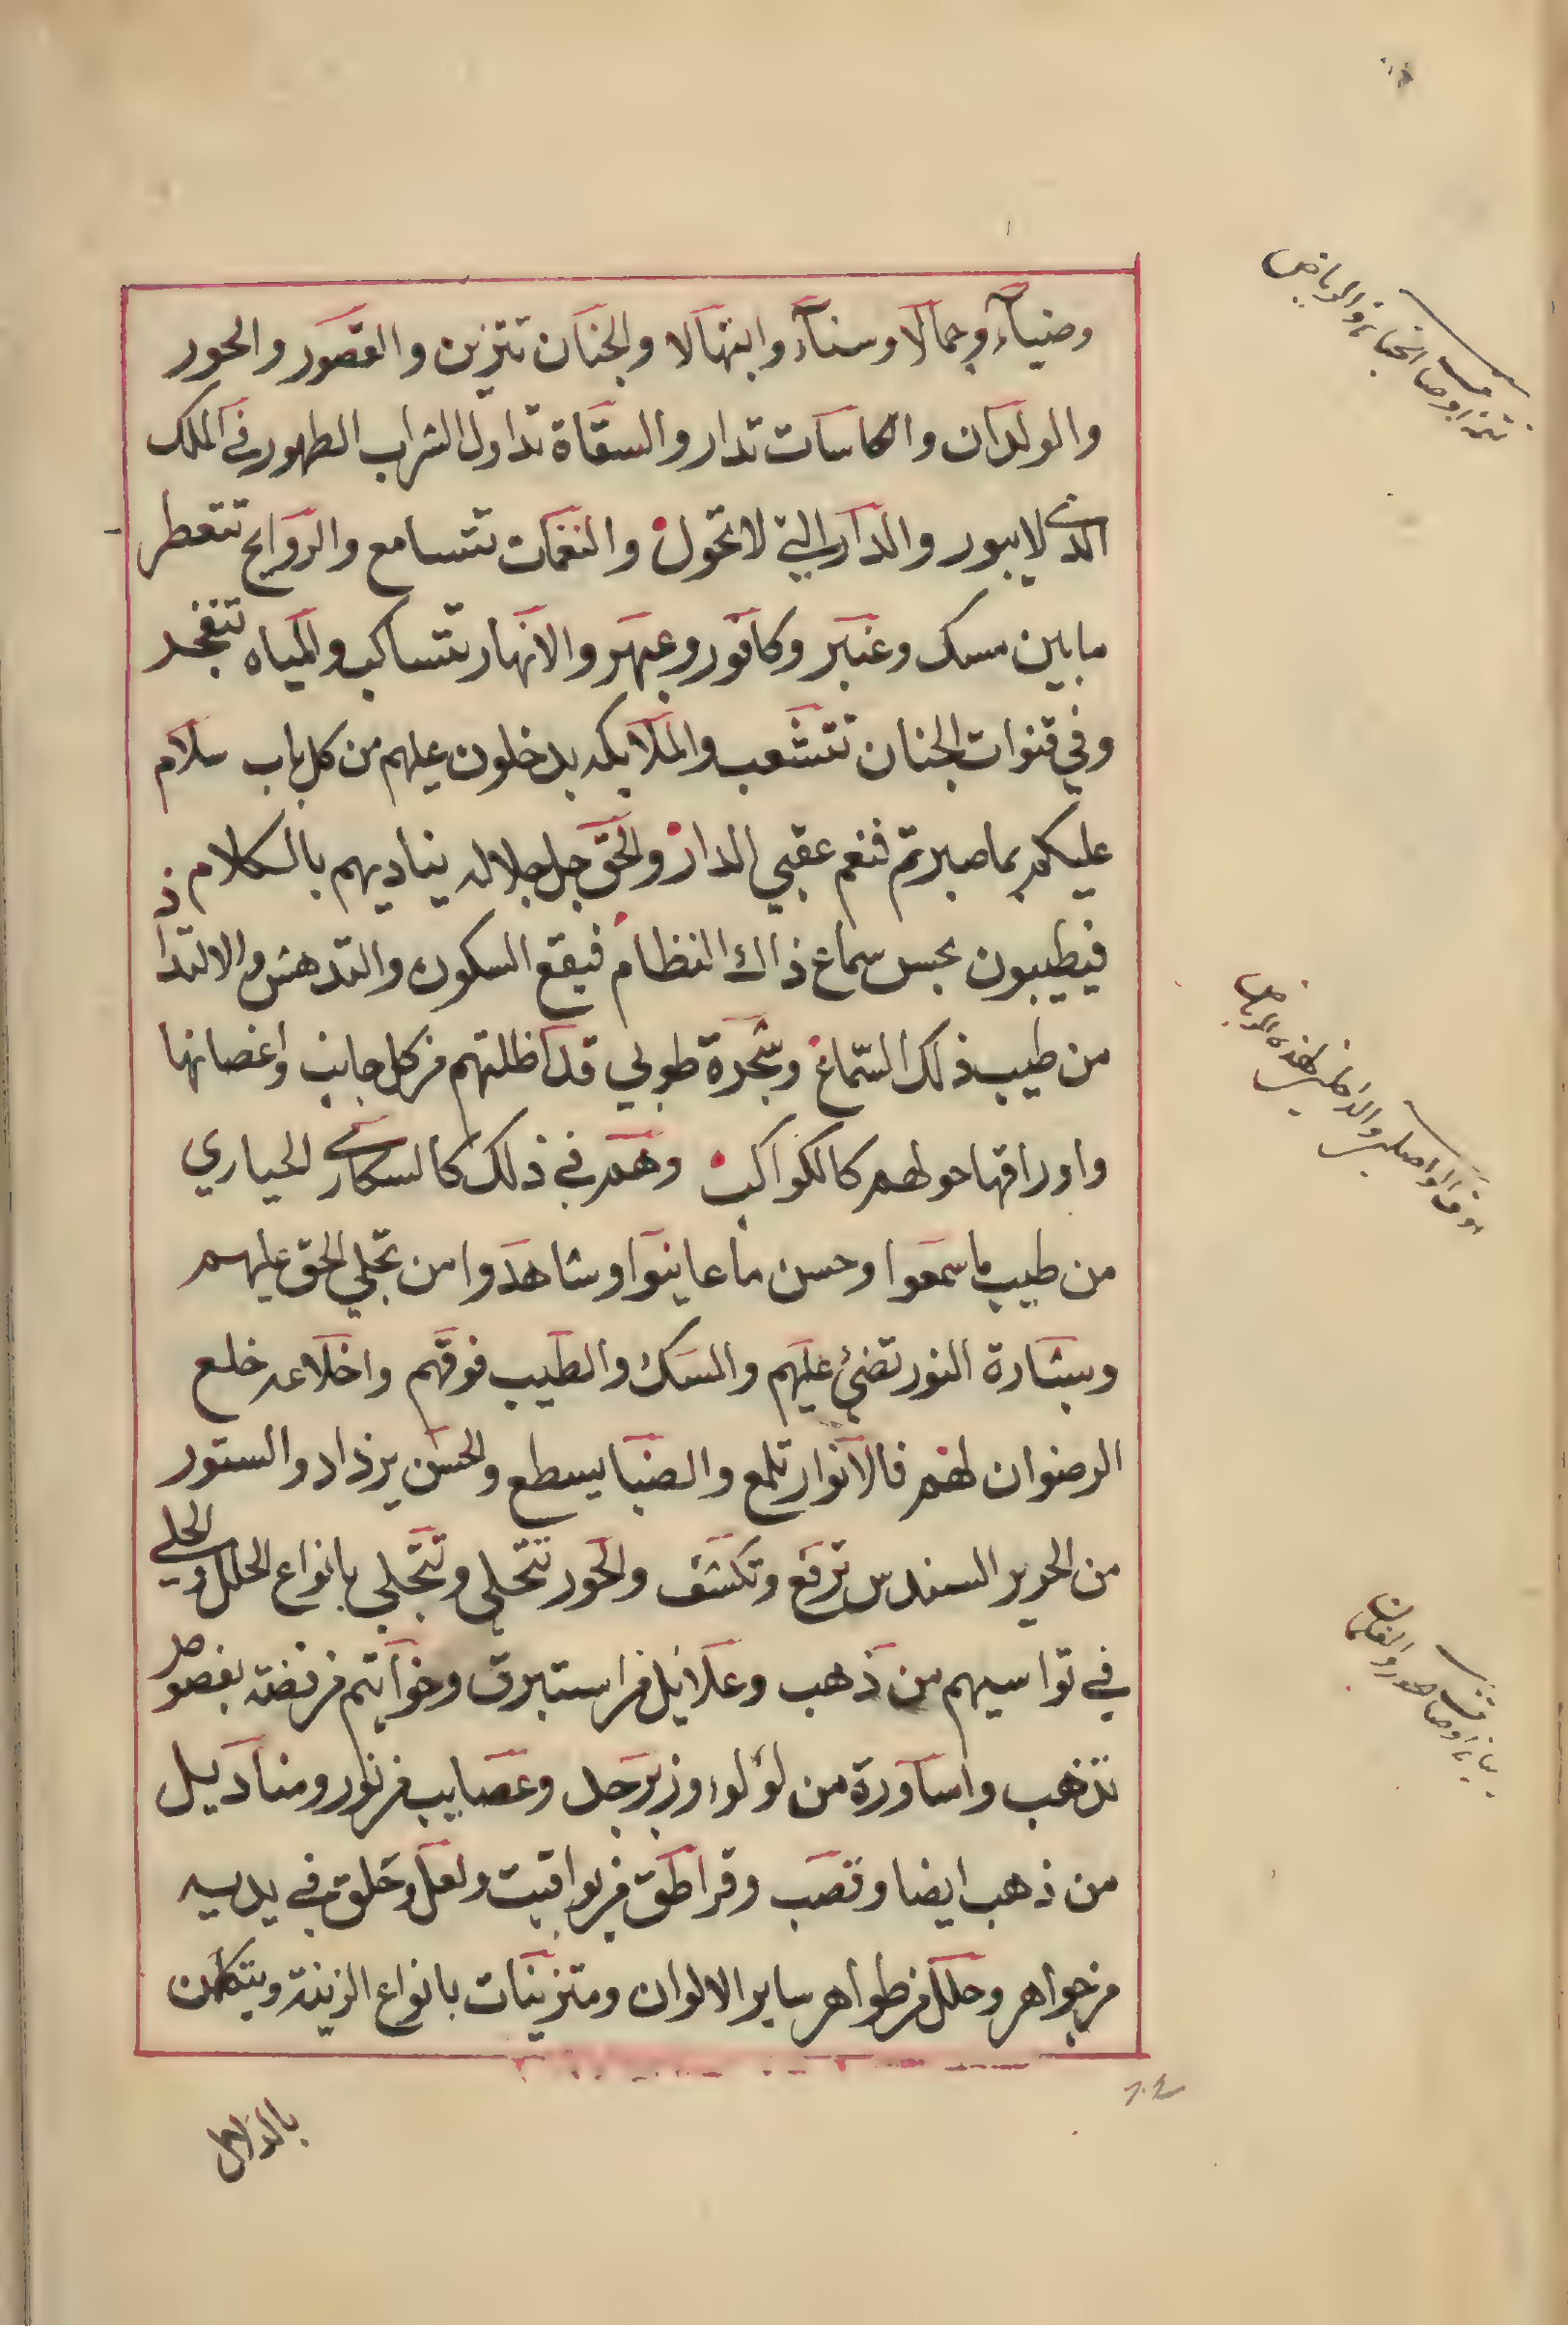 وضيآء وجمالا وسنآء وابتهالا والجنان تتزين والقصور والحور
والولدان والكاسات تدار والسقاة تداول الشراب الطهور في الملك
الذي لا يبور والدار التي لا تحول والنغمات تتسامع والروايح تتعطر
ما بين مسك وعنبر وكافور وعبهر والانهار تتساكب والمياه تتفجر
وفي قنوات الجنان تتشعب والملايكه يدخلون عليهم من كل باب سلام
عليكم بما صبرتم فنعم عقبي الدار والحق جل جلاله يناديهم بالكلام
فيطيبون بحسن سماع ذاك النظام فيقع السكون والتدهش والالتذاذ
من طيب ذلك السماع وشجرة طوبي قد اظلتهم من كل جانب واغصانها
واوراقها حولهم كالكواكب وهم في ذلك كالسكارى الحياري
من طيب ما سمعوا وحسن ما عاينوا وشاهدوا من تجلي الحق عليهم
وبشارة النور تضيء عليهم والمسك والطيب فوقهم واخلاعه خلع
الرضوان لهم فالانوار تلمع والضيا يسطع والحسن يزداد والستور
من الحرير السندس ترفع وتكشف والحور تتحلي وتتجلي بانواع الحلل والحلي
في تواسيهم من ذهب وعلايل من استبرق وخواتم من فضة بفصوص
تذهب واساورة من لؤلوء وزبرجد وعصايب من نور ومناديل
من ذهب ايضا وقصب وقراطق من يواقيت ولعل وحلق في يديه
من جواهر وحلل من طواهر ساير الالوان ومتزينات بانواع الزينة ويتكلمن
بالدلال